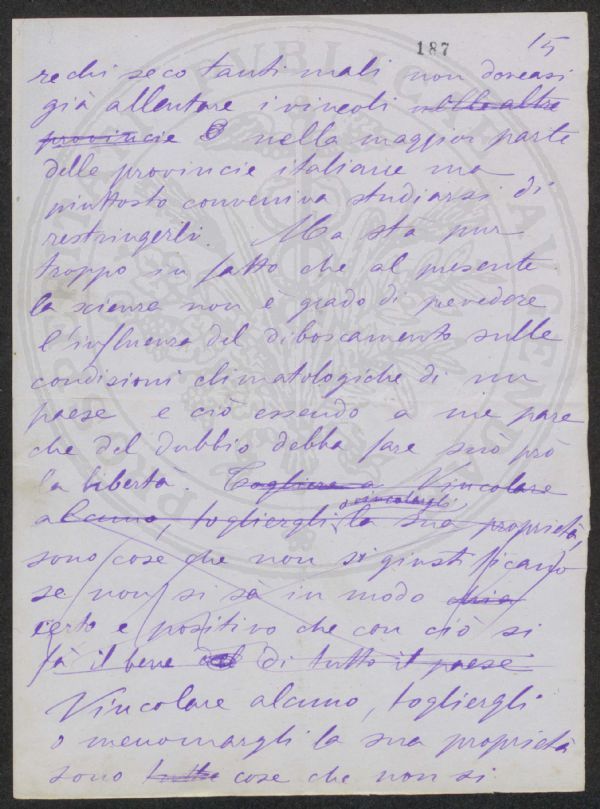 187 15
rechi seco tanti mali non doveasi
già allentare i vincoli nelle altre
provincie E nella maggior parte
delle provincie italiane ma
piuttosto conveniva studiarsi di
restringerli. Ma sta pur
troppo in fatto che al presente
la scienza non e grado di prevedere
l'influenza del diboscamento sulle
condizioni climatologiche di un
paese e ciò essendo a me pare
che del dubbio debba fare suo prò
la libertà. Togliere a Vincolare
o vincolargli
alcuno, togliergli la sua proprietà,
sono cose che non si giustificano
se non si sa in modo
certo e positivo che con ciò si
fà il bene del di tutto il paese
Vincolare alcuno, togliergli
o menomargli la sua proprietà
sono tutte cose che non si